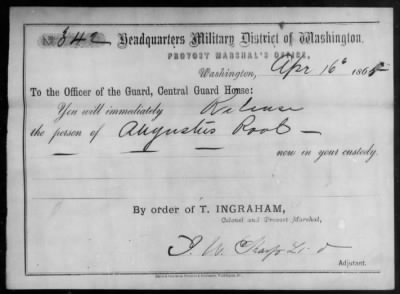 No 342 Headquarters Military District of Washington,
PROVOST MARSHAL'S OFFICE,
Washington, Apr 16th 1865
To the Officer of the Guard, Central Guard House:
You will immediately Release
the person of Augustus Root —
— — now in your custody.
By order of T. INGRAHAM,
Colonel and Provost Marshal,
Adjutant.